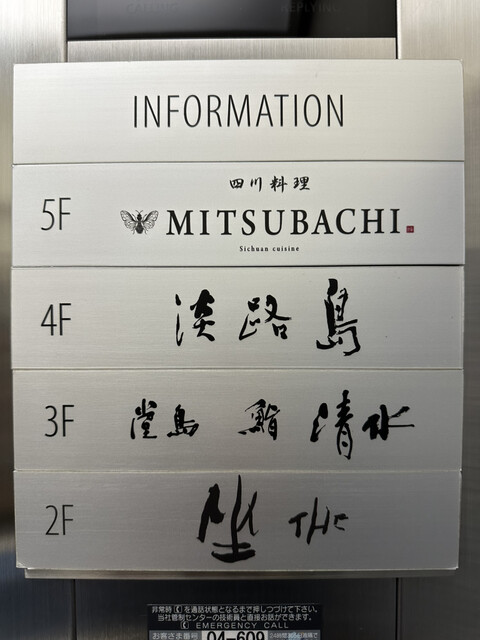 INFORMATION
5F
四川料理
MITSUBACHI.
Sichuan cuisine
4F 淡路島
3F 堂島 鮨 清水
2F 坐 THE
非常時 を通話状態となるまで押しつづけて下さい。
当社管制センターの技術員と直接お話ができます。
EMERGENCY CALL
お客さま番号 04-609